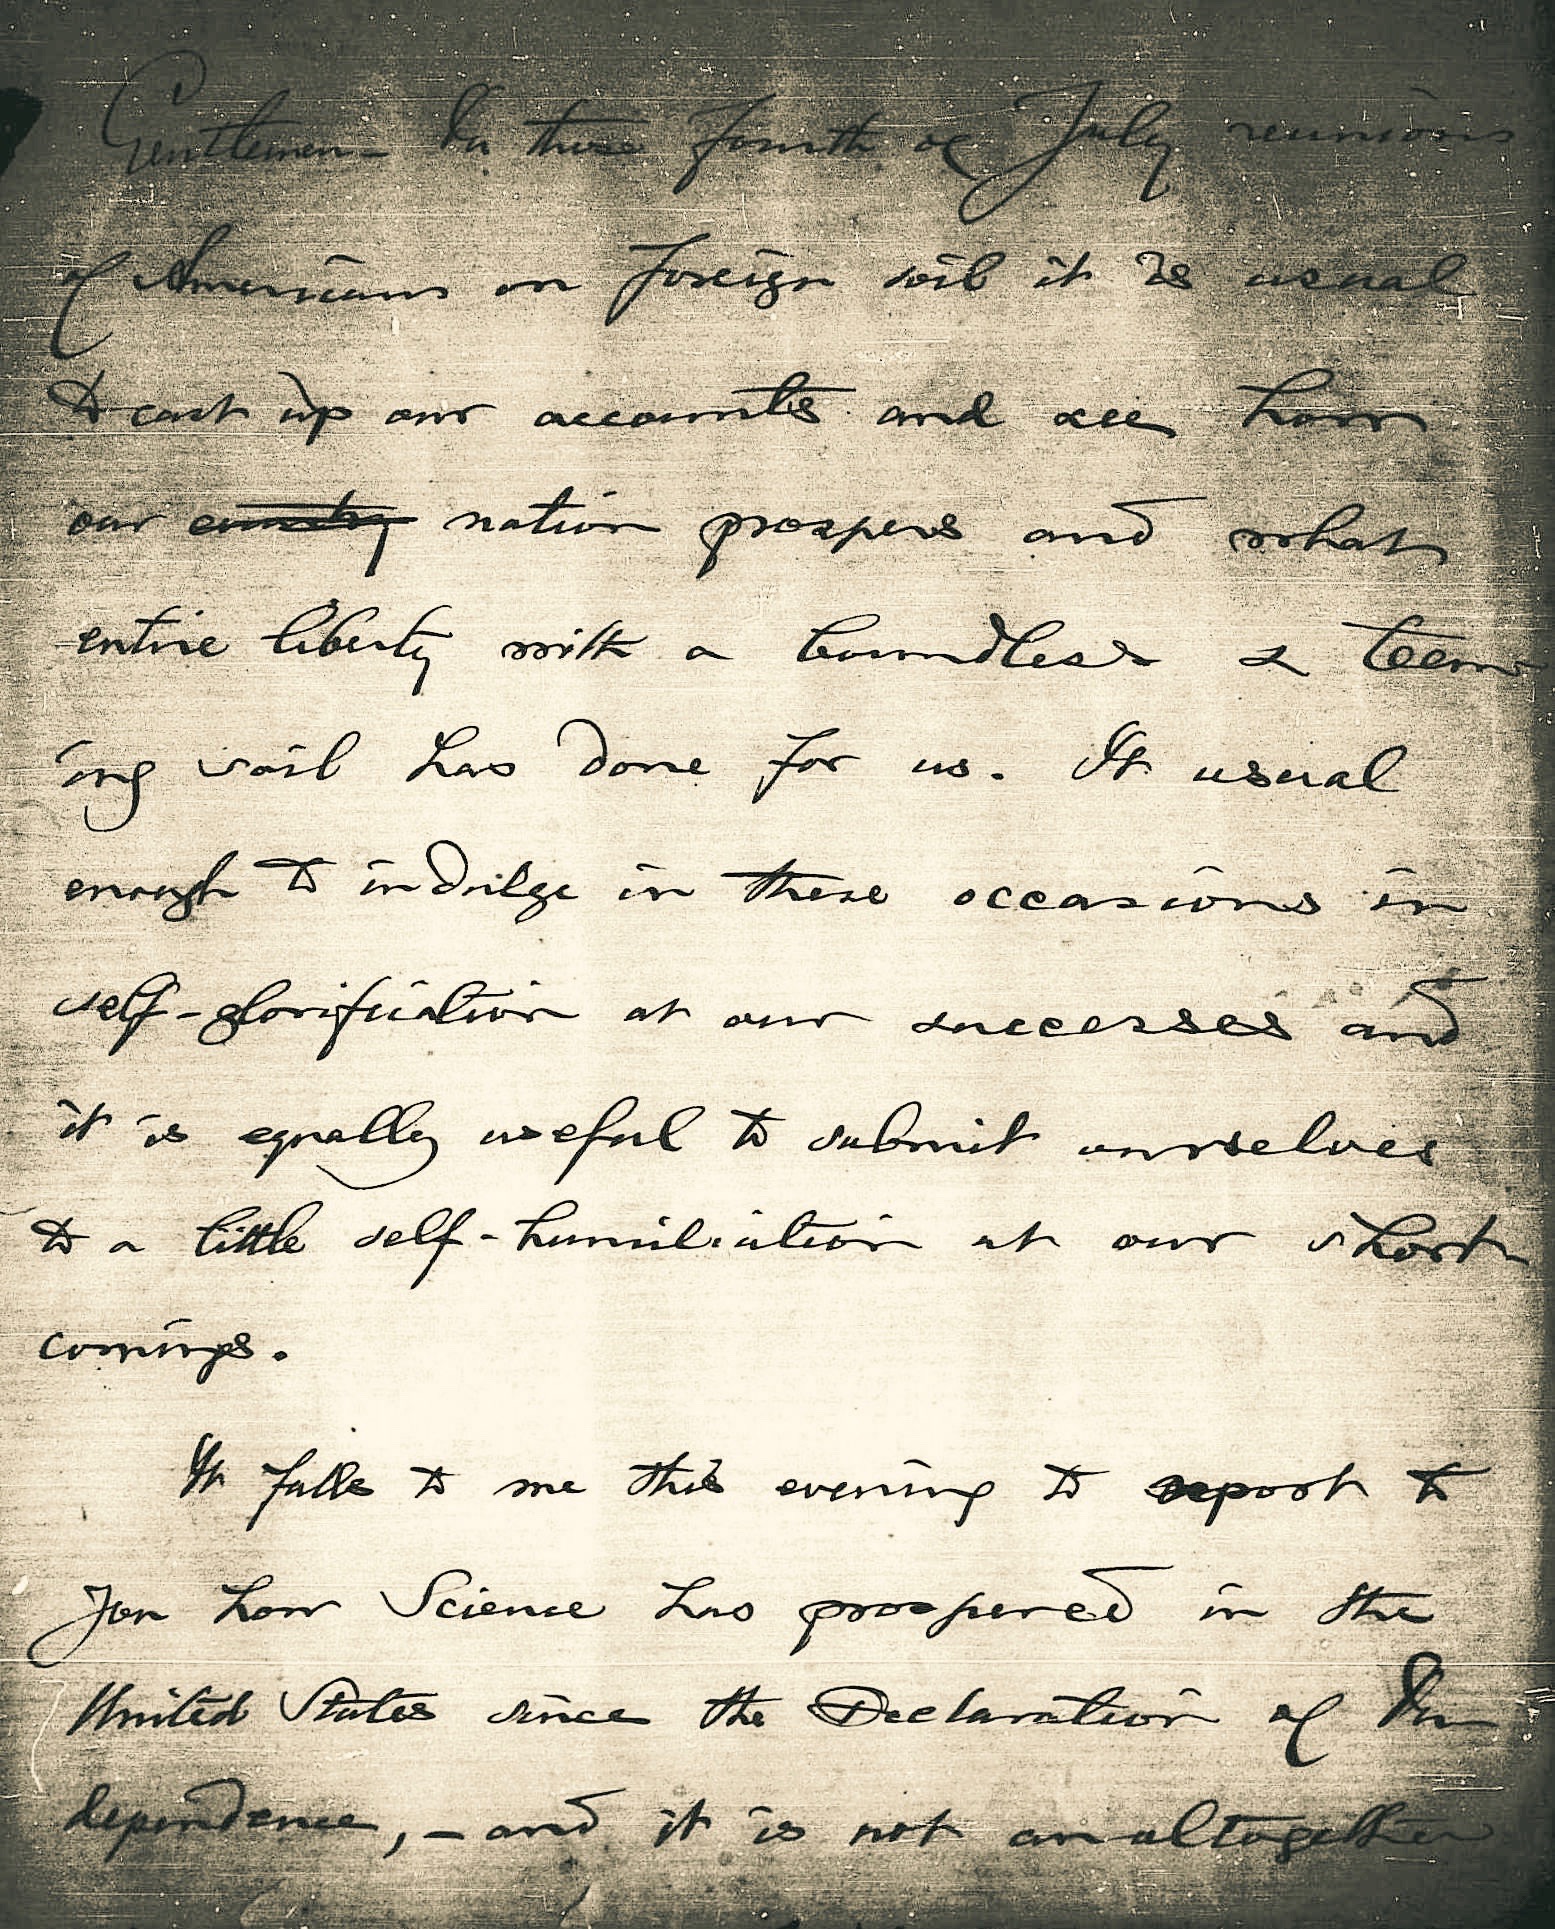 Gentlemen – In these Fourth of July reunions
of Americans on foreign soil it is usual
to cast up our accounts and see how
our country nation prospers and what
entire liberty with a boundless & teem
ing soil has done for us. It usual
enough to indulge in these occasions in
self-glorification at our successes and
it is equally useful to submit ourselves
to a little self-humiliation at our short
comings.
It falls to me this evening to report to
you how Science has prospered in the
United States since the Declaration of In
dependence, – and it is not an altogether